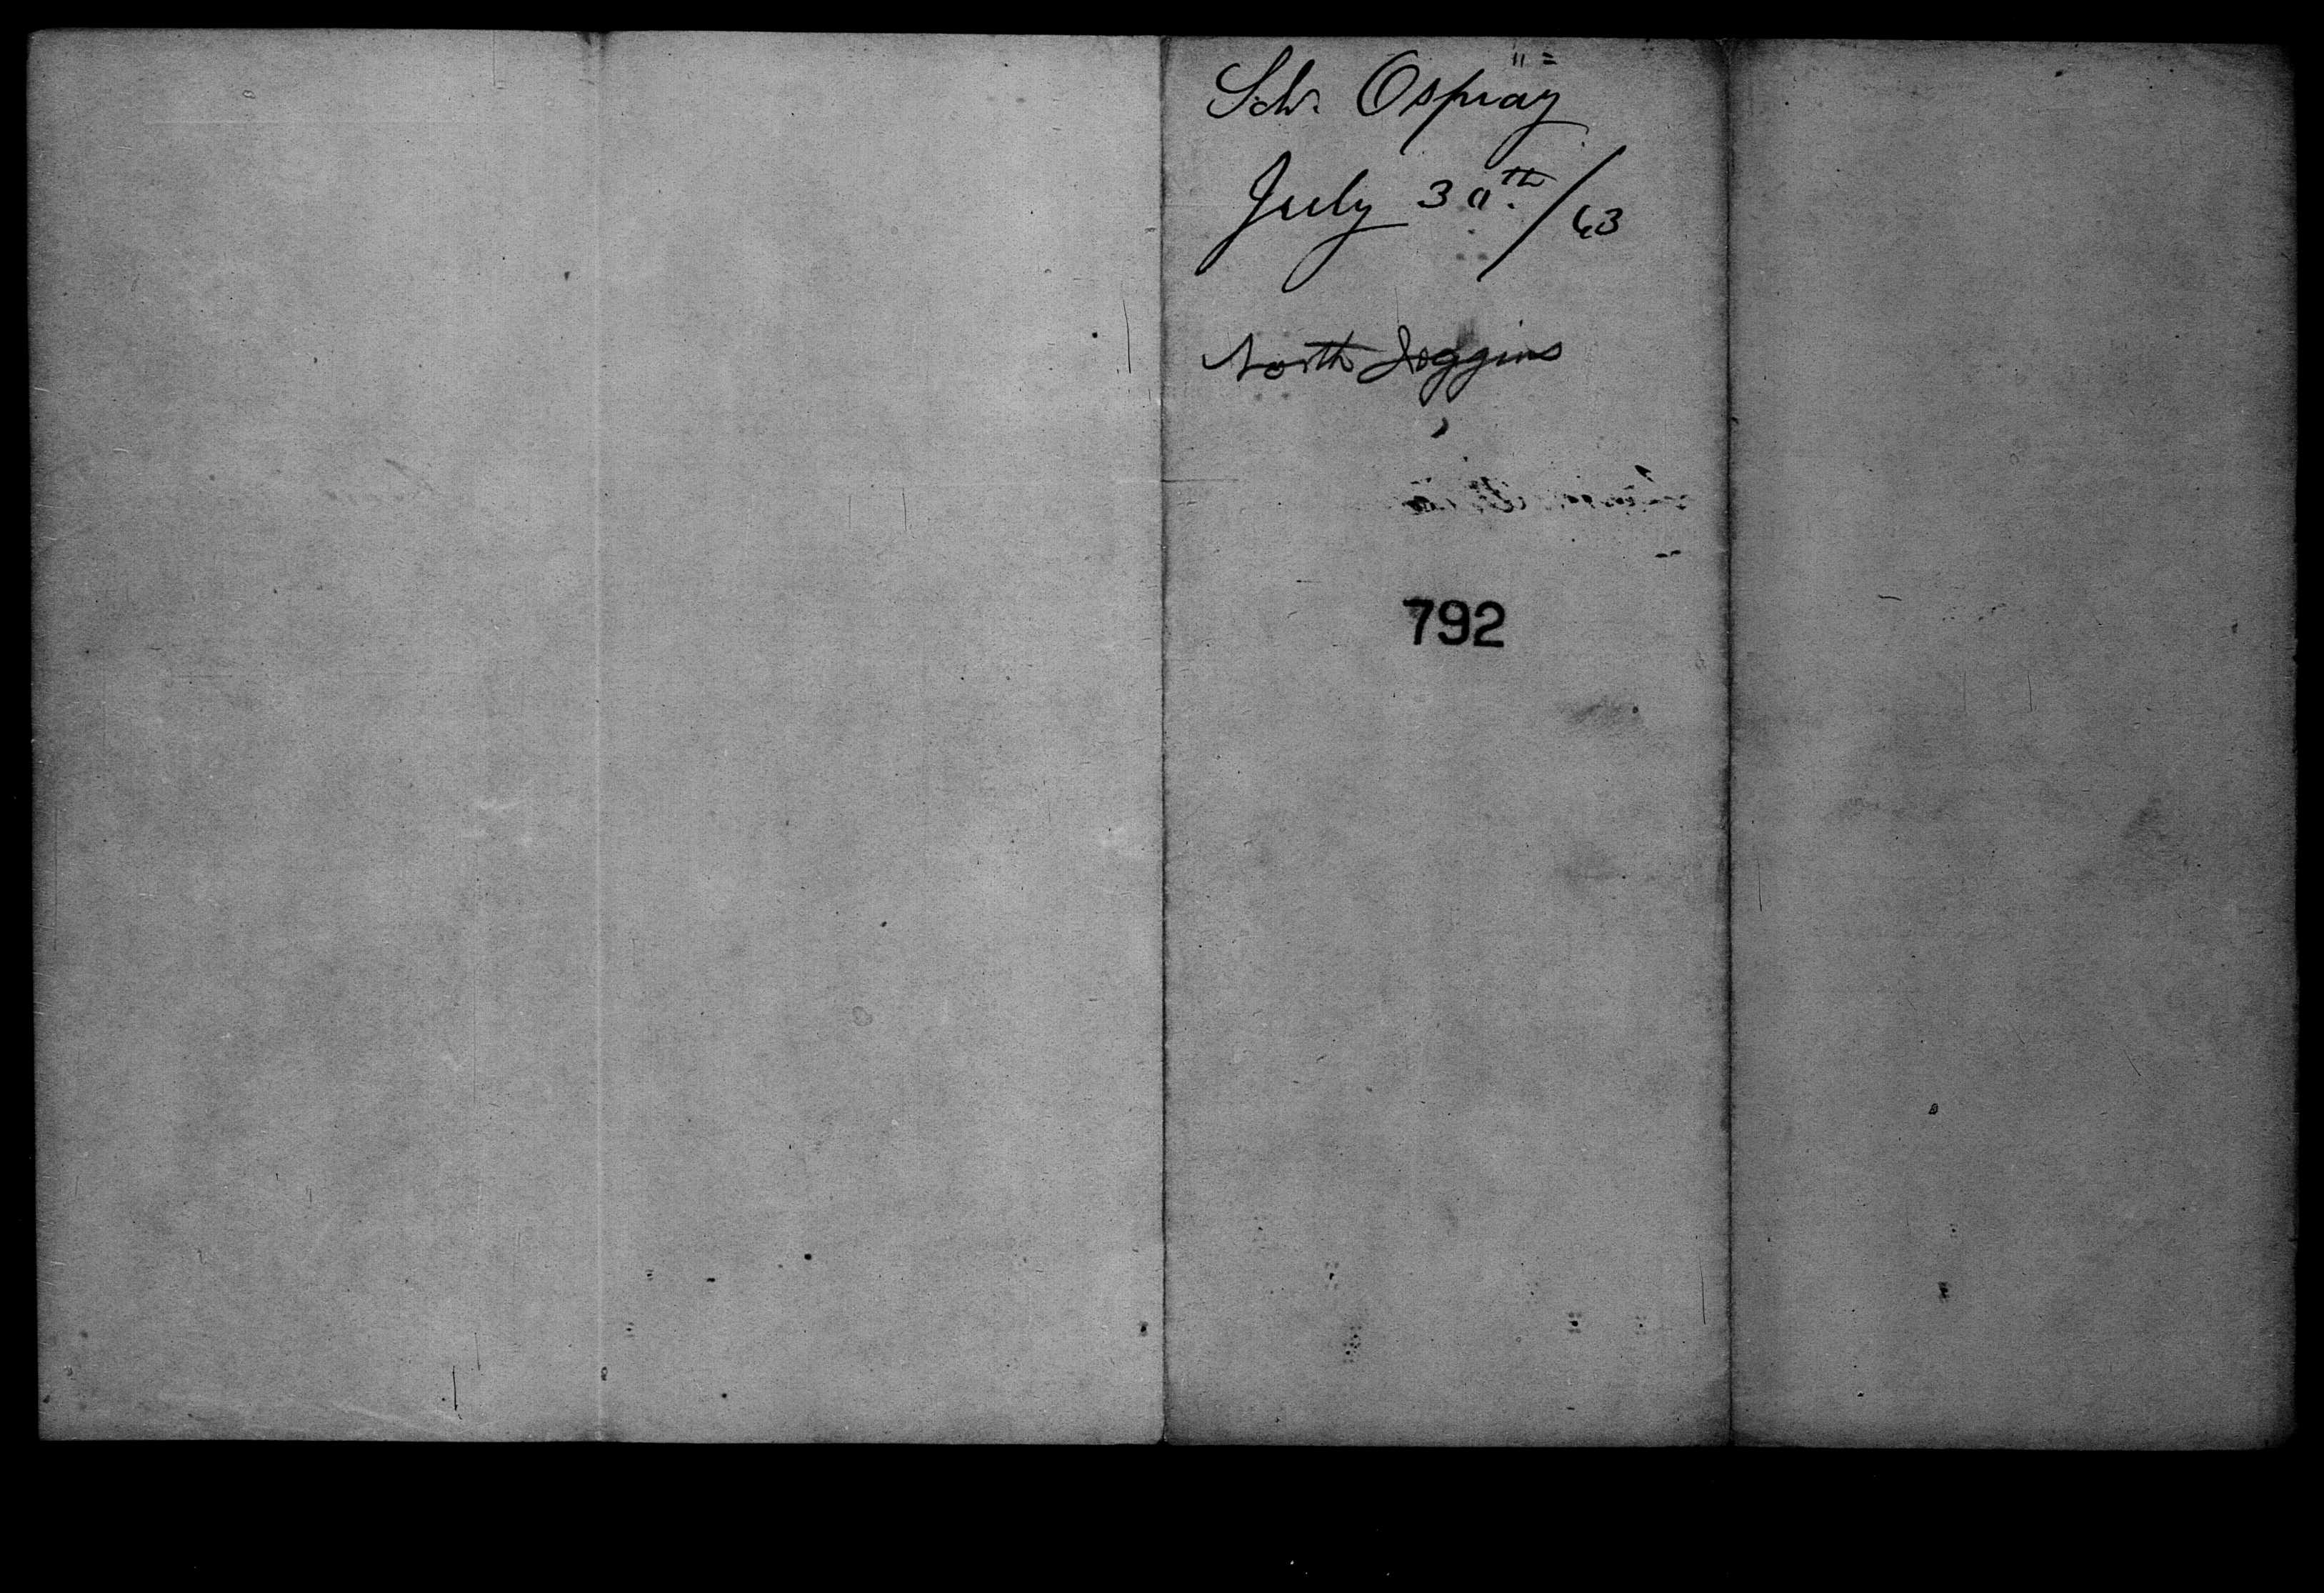 Schr. Ospray
July 30th/63
North Joggins
792